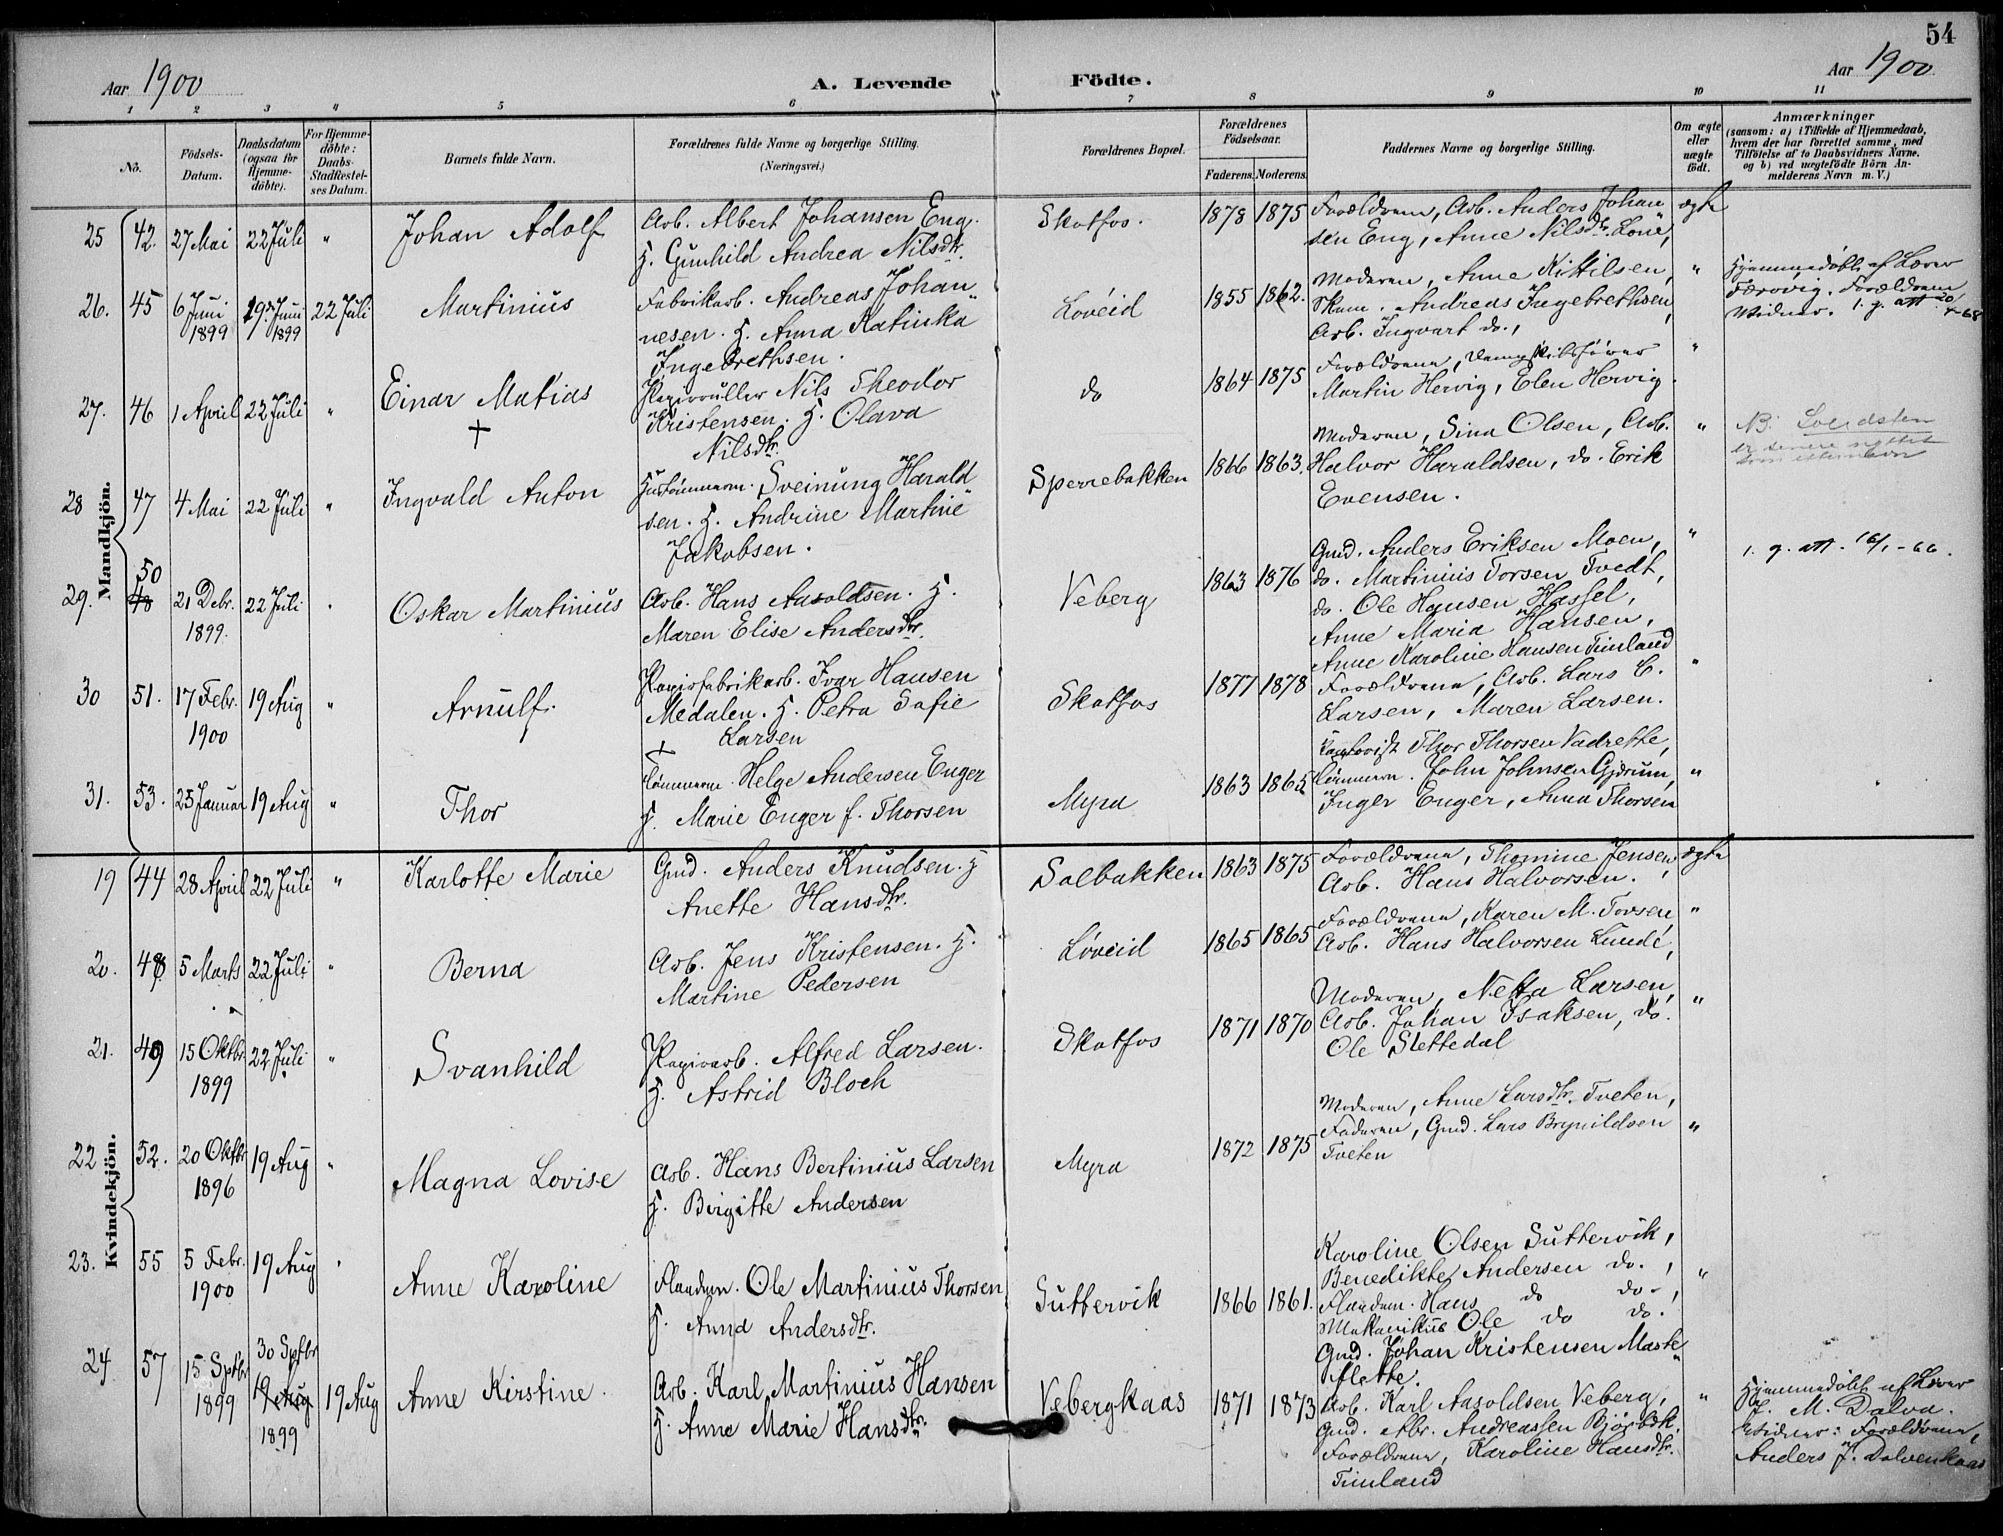 54
Aar 1900
A. Levende Födte.
Aar 1900
1 2 3 4 5 6 7 8 9 10 11
No.
Födsels-Datum.
Daabsdatum (ogsaa for Hjemme-döbte).
For Hjemme-döbte: Daabs-Stadfæstel-ses Datum.
Barnets fulde Navn.
Forældrenes fulde Navne og borgerlige Stilling.
(Næringsvei.)
Forældrenes Bopæl.
Forældrenes Födselsaar.
Faderens. Moderens.
Faddernes Navne og borgerlige Stilling.
Om ægte eller uægte födt.
Anmærkninger
(saasom: a) i Tilfælde af Hjemmedaab, hvem der har forrettet samme, med Tilföielse af to Daabsvidners Navne. og b) ved uægtefödte Börn An-melderens Navn m. V.)
Mandkjön.
25 42. 27 Mai 22 Juli " Johan Adolf
Arb. Albert Johansen Eng.
H. Gunhild Andrea Nilsdtr.
Skotfos. 1878 1875
Forældrene, Arb. Anders Johan
sen Eng, Anne Nilsdtr. Lone,
ægte
26. 45 6 Juni 1899 19 Juni 1899 22 Juli Martinius
Fabrikarb. Andreas Johan
nesen. H. Anna Katinka
Ingebrethsen.
Løveid 1855 1862.
Moderen, Anne Kittilsen,
Skom. Andreas Ingebrethsen,
Arb. Ingvart do.,
"
Hjemmedøbt af Lærer
Færøvig. Forældrene
Vidner. 1. g. att 20/4-68
27. 46 1 April 22 Juli " Einar Matias
+
Papirruller Nils Theodor
Kristensen. H. Olava
Nilsdtr.
do 1864 1875
Forældrene, Dampskibsfører
Martin Hervig, Elen Hervig.
"
28 47 4 Mai 22 Juli " Ingvald Anton
Hustømmerm. Sveinung Harald
sen. H. Andrine Martine
Jakobsen.
Sperrebakken 1866 1863.
Moderen, Sina Olsen, Arb.
Halvor Haraldsen, do. Erik
Evensen.
"
NB.
er senere
som etternavn
29. 50 48 21 Debr. 1899. 22 Juli " Oskar Martinius
Arb. Hans Aasoldsen. H.
Maren Elise Andersdtr.
Veberg 1863 1876
Gmd. Anders Eriksen Moen,
do. Martinius Torsen Tvedt,
do. Ole Hansen Hassel,
Anne Maria Hansen,
Anne Karoline Hansen Timland
"
1. g. att. 16/1-66.
30 51. 17 Febr. 1900 19 Aug " Arnulf.
Papirfabrikarb. Ivar Hansen
Medalen. H. Petra Sofie
Larsen
Skotfos 1877 1878
Forældrene, Arb. Lars C.
Larsen, Maren Larsen.
"
31. 53. 25 Januar 19 Aug " Thor
Tømmerm. Helge Andersen Enger
H. Marie Enger f. Thorsen
Myra 1863 1865
Kontorist Thor Thorsen Vadrette,
Tømmerm. John Johnsen Gjerum,
Inger Enger, Anna Thorsen
"
Kvindekjön.
19 44 28 April 22 Juli " Karlotte Marie
Gmd. Anders Knudsen. H
Anette Hansdtr.
Solbakken 1863 1875
Forældrene, Thomine Jensen,
Arb. Hans Halvorsen.
ægte
20. 48 5 Marts 22 Juli " Berna
Arb. Jens Kristensen. H.
Martine Pedersen
Løveid 1865 1865
Forældrene, Karen M. Torsen,
Arb. Hans Halvorsen Lunde,
"
21. 49 15 Oktbr. 1899 22 Juli " Svanhild
Papirarb. Alfred Larsen.
H. Astrid Bloch
Skotfos 1871 1870
Moderen, Netta Larsen,
Arb. Johan Isaksen, do.
Ole Slettedal
"
22 52. 20 Oktbr 1896 19 Aug " Magna Lovise
Arb. Hans Bertinius Larsen
H. Birgitte Andersen
Myra 1872 1875
Moderen, Anne Larsdtr. Tveten,
Faderen, Gmd. Lars Brynildsen
Tveten
"
23. 55 5 Febr. 1900 19 Aug " Anne Karoline
Flaadem. Ole Martinius Thorsen
H. Anna Andersdtr.
Suttervik 1866 1861.
Karoline Olsen Suttervik,
Benedikte Andersen do.,
Flaadem. Hans do do.,
Mekanikus Ole do do.
"
24 57 15 Sptbr 1899 30 Sptbr 19 Aug 1899 19 Aug Anne Kirstine.
Arb. Karl Martinius Hansen
H. Anne Marie Hansdtr.
Vebergkaas 1871 1873
Gmd. Johan Kristensen Marke
flette.
Arb. Karl Aasoldsen Veberg,
Gmd. Abr. Andreassen Bjørbæk.
Forældrene, Karoline Hansdtr.
Timland
"
Hjemmedöbt af Lærer
J. M. Dalva.
Vidner: Forældrene,
Anders J. Dolvenkaas